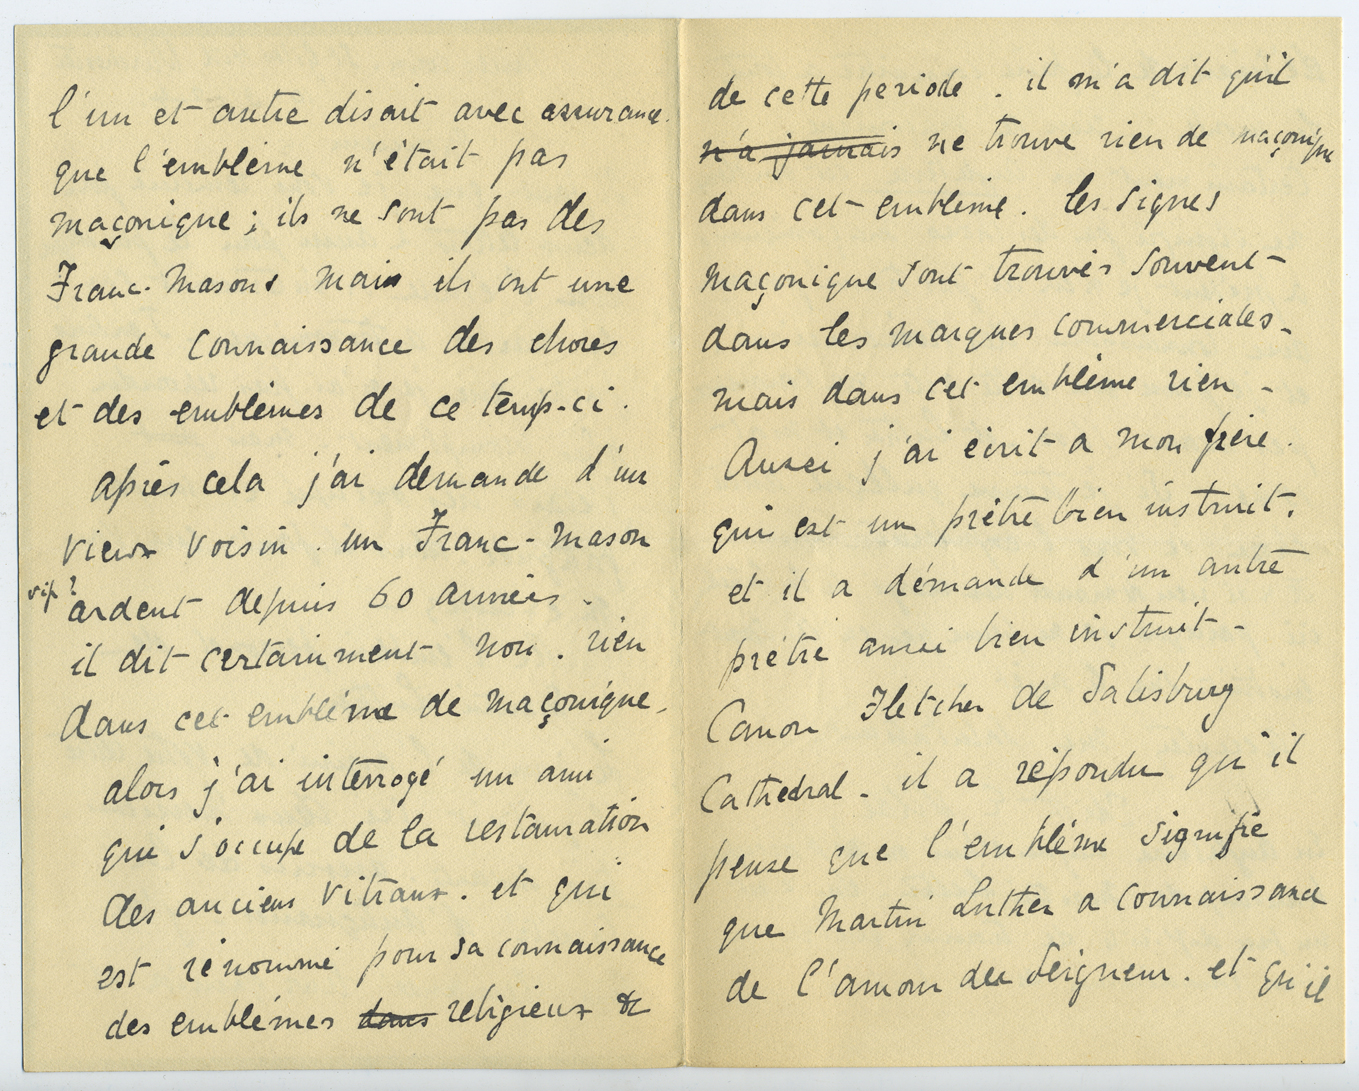 l'un et autre disait avec assurance.
que l'emblème n'était pas
maçonique ; ils ne sont pas des
Franc-Masons mais ils ont une
grande connaissance des choses
et des emblèmes de ce temp-ci.
après cela j'ai demande d'un
vieux voisin. un Franc-Mason
ardent depuis 60 années.
il dit certainment non. rien
dans cet emblème de maçonique.
alors j'ai interrogé un ami
qui s'occupe de la restauration
des anciens vitraux. et qui
est rénommé pour sa connaissance
des emblémes dans religieux &
de cette periode. il m'a dit qu'il
n'a jamais ne trouve rien de maçonique
dans cet emblème. les signes
maçonique sont trouvés souvent
dans les marques commerciales.
mais dans cet emblème rien -
Aussi j'ai écrit a mon frère.
qui est un prêtre bien instruit.
et il a démande d'un autre
prétre aussi bien instruit -
Canon Fletcher de Salisburg
Cathedral. il a répondu qu'il
pense que l'emblème signifie
que Martin Luther a connaissance
de l'amour du Seigneur. et qu'il